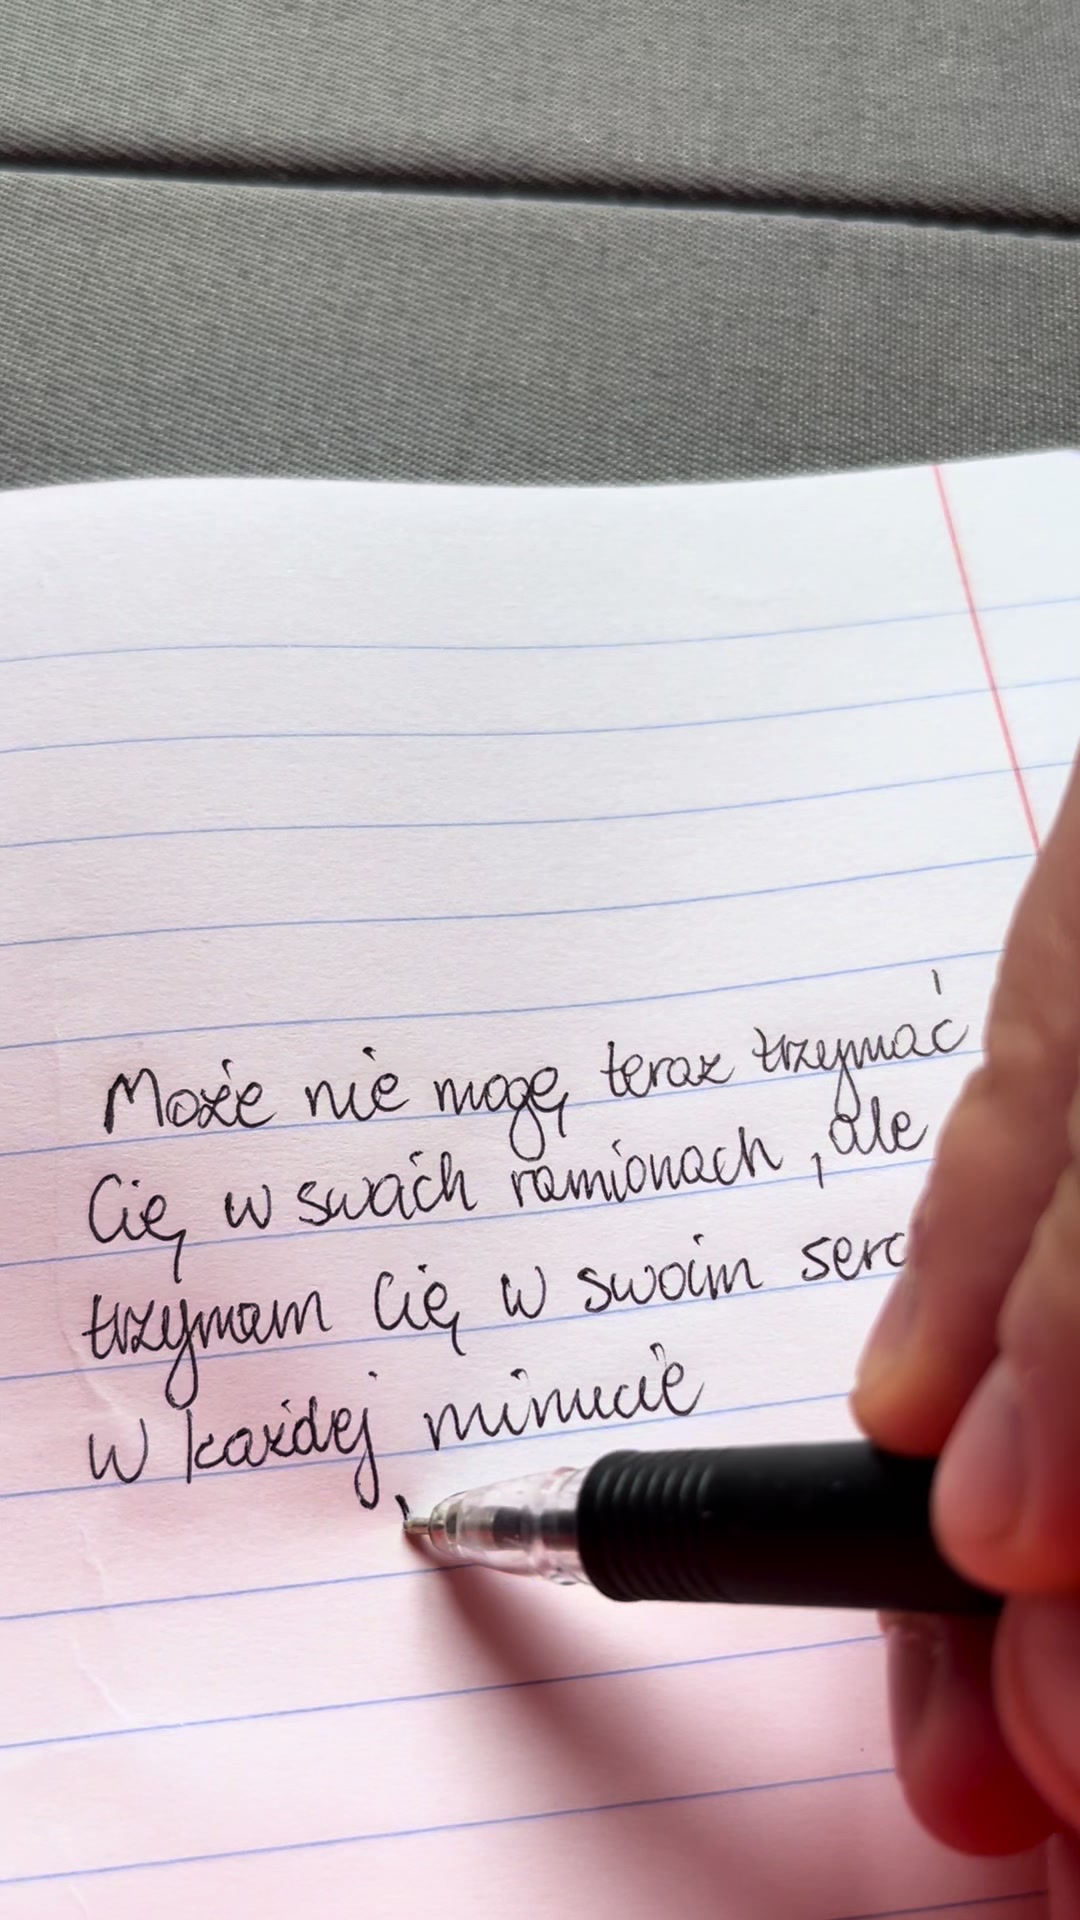 Może nie mogę teraz trzymać
Cię w swoich ramionach, ale
trzymam Cię w swoim
w każdej minucie